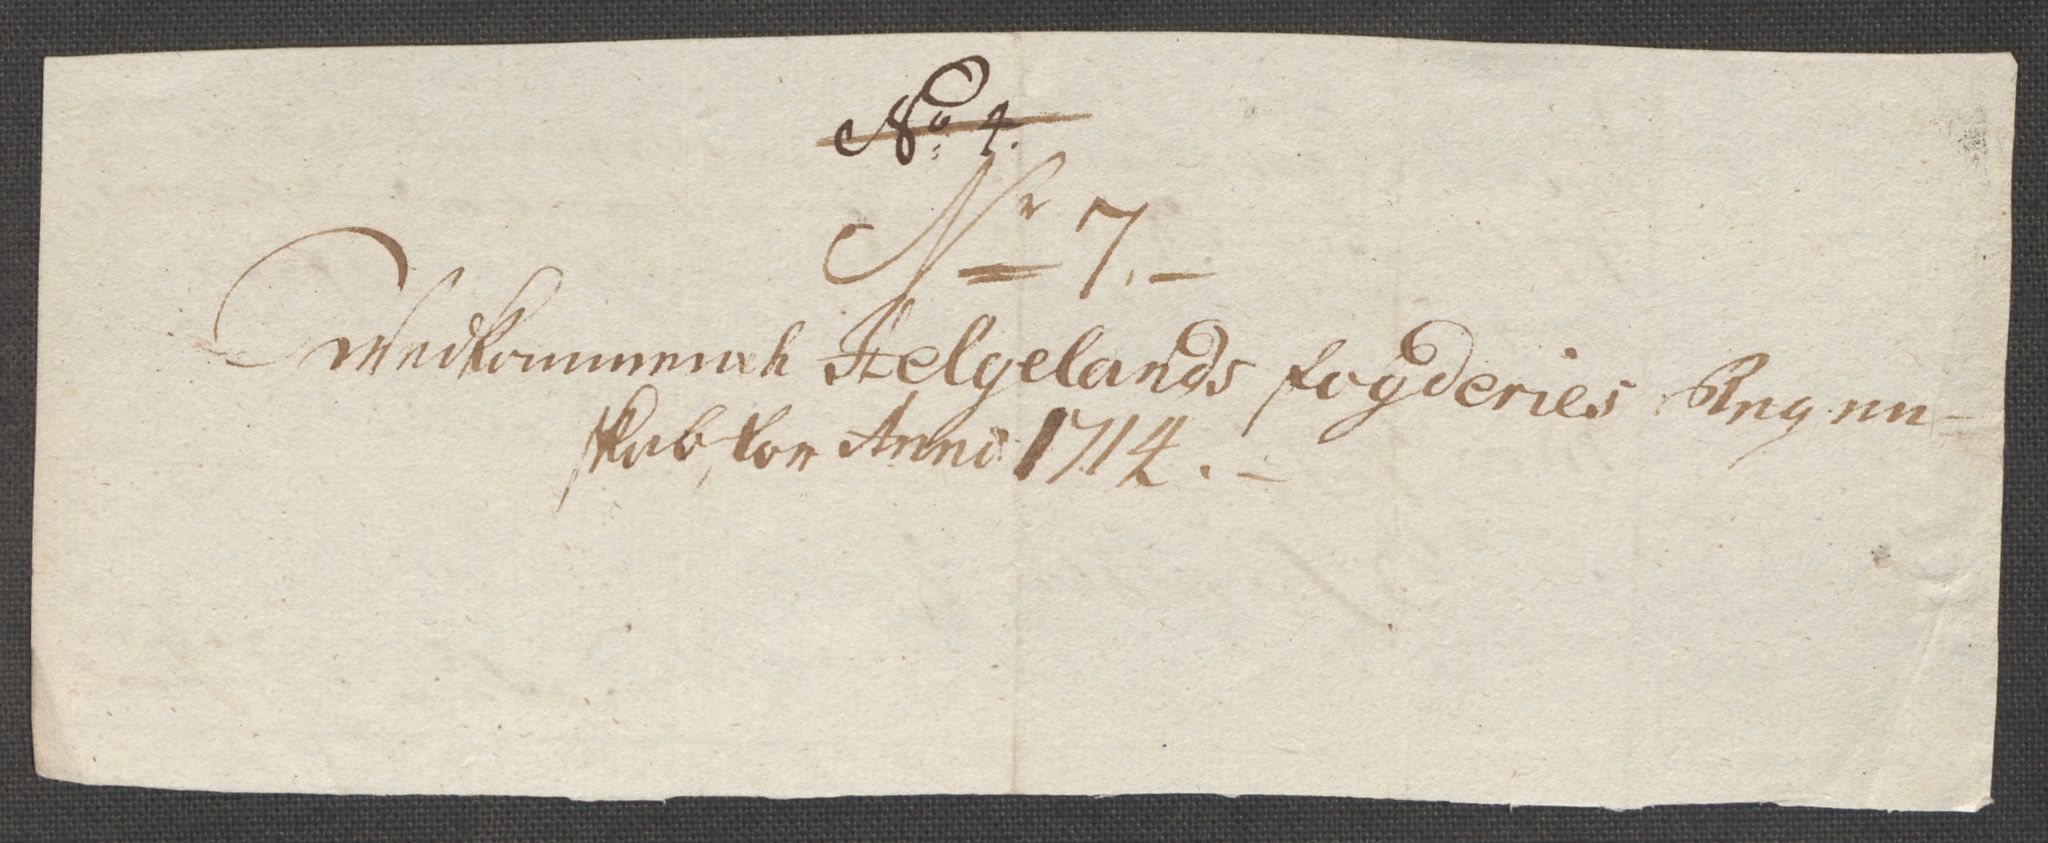 No. 4.
Nr 7.
Vedkommende Helgelands fogderies Regen-
skab for Anno 1714.